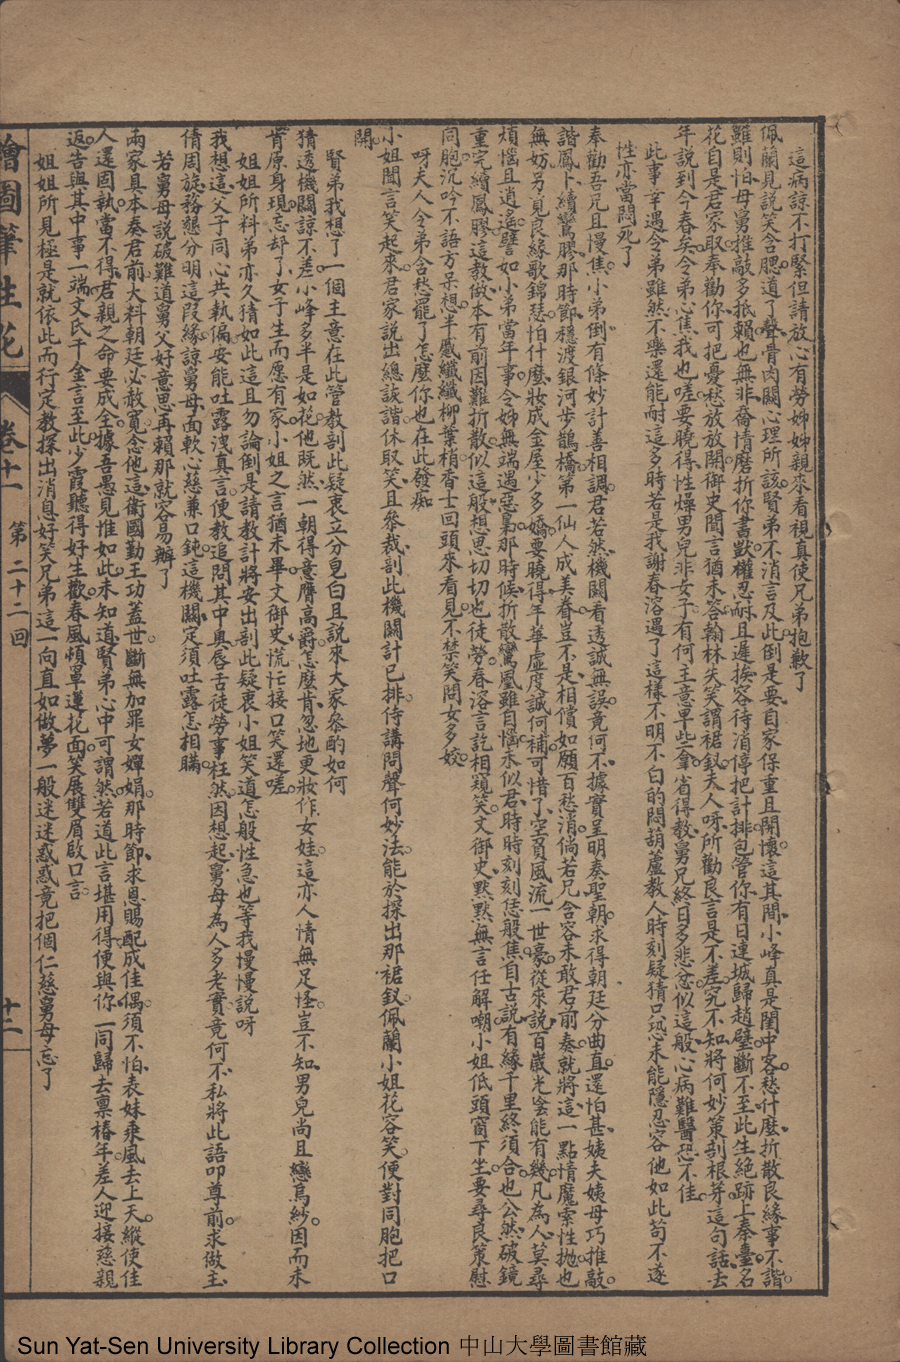 這病諒不打緊但請放心有勞姊姊親來看視真使兄弟抱歉了
佩蘭見說笑含腮道了聲骨肉關心理所該賢弟不消言及此倒是要自家保重且開懷這其間小峰真是閨中客愁什麼折散良緣事不諧
雖則怕母舅推敲多抵賴也無非裔情磨折你書獃權忍耐且遲挨容待消停把計排包管你有日連城歸趙壁斷不至此生絕跡上秦臺名
花自是君家取奉勸你可把憂愁放放開御史聞言猶未答翰林失笑謂裙釵夫人呀所勸良言是不差究不知將何妙策剖根芽這句話去
年說到今春矣令弟心焦我也嗟要曉得性燥男兒非女子有何主意早些拿省得教舅兄終日多悲忿似這般心病難醫恐不佳
此事幸遇令弟雖然不樂還能耐這多時若是我謝春溶遇了這樣不明不白的悶葫蘆教人時刻疑猜只恐未能隱忍容他如此苟不遂
性亦當悶死了
奉勸吾兄且慢焦小弟倒有條妙計善相調君若然機關看透誠無誤竟何不據實呈明奏聖朝求得朝廷分曲直還怕甚姨夫姨母巧推敲
諧鳳卜續鸞膠那時節穩渡銀河步鵲橋第一仙人成美眷豈不是相償如願百愁消倘若兄含容未敢君前奏就將這一點情魔索性拋也
無妨另覓良緣歌錦瑟怕什麼妝成金屋少多嬌要曉得年華虛度誠何補可惜了空負風流一世豪從來說百歲光陰能有幾凡為人莫尋
煩惱且逍遙譬如小弟當年事令姊無端遇惡梟那時候折散鸞凰雖自惱未似君時時刻刻恁般焦自古說有緣千里終須合也公然破鏡
重完續鳳膠這教做本有前因難折散似這般想思切切也徒勞春溶言訖相窺笑文御史默默無言任解嘲小姐低頭窗下坐要尋良策慰
同胞沉吟不語方呆想半蹙纖纖柳葉梢香士回頭來看見不禁笑問女多姣
呀夫人令弟含愁罷了怎麼你也在此發痴
小姐聞言笑起來君家說出總詼諧休取笑且參裁剖此機關計已排侍講問聲何妙法能於探出那裙釵佩蘭小姐花容笑便對同胞把口
開
賢弟我想了一個主意在此管教剖此疑衷立分皂白且說來大家參酌如何
猜透機關諒不差小峰多半是如花他既然一朝得意膺高爵怎麼肯忽地更妝作女娃這亦人情無足怪豈不知男兒尚且戀烏紗因而未
肯原身現忘却了女子生而愿有家小姐之言猶未畢文御史慌忙接口笑還嗟
姐姐所料弟亦久猜如此這且勿論倒是請教計將安出剖此疑衷小姐笑道怎般性急也等我慢慢說呀
我想這父子同心共執偏安能吐露洩真言便教追問其中奧唇舌徒勞事枉然因想起舅母為人多老實竟何不私將此語叩尊前求做主
倩周旋務懇分明這段緣諒舅母面軟心慈兼口鈍這機關定須吐露怎相瞞
若舅母說破難道舅父好意思再賴那就容易辦了
兩家具本奏君前大料朝廷必赦寬念他這衛國勤王功蓋世斷無加罪女嬋娟那時節求恩賜配成佳偶須不怕表妹乘風去上天縱使佳
人還固執當不得君親之命要成全據吾愚見惟如此未知道賢弟心中可謂然若道此言堪用得便與你一同歸去禀椿年差人迎接慈親
返告與其中事一端文氏千金言至此少霞聽得好生歡春風頓罩蓮花面笑展雙眉啟口言
姐姐所見極是就依此而行定教探出消息好笑兄弟這一向直如做夢一般迷迷惑惑竟把個仁慈舅母忘了
繪圖筆生花
卷十一
第二十二回
十二
Sun Yat-Sen University Library Collection 中山大學圖書館藏